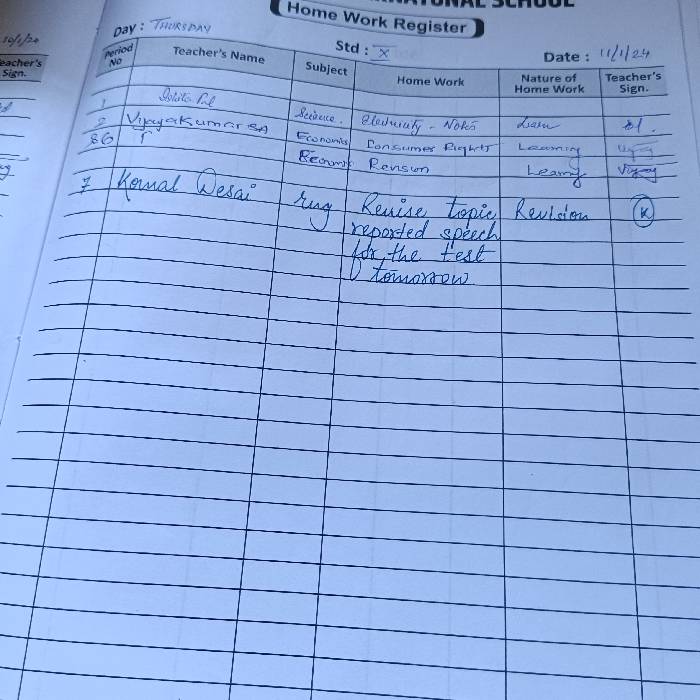 Home Work Register
10/1/24
Day : THURSDAY
Std : X
Date : 11/1/24
Teacher's
Sign.
Period
No
Teacher's Name
Subject
Home Work
Nature of
Home Work
Teacher's
Sign.
1 Science. Electricity - Notes Learn
2 Vijayakumar SA Economics Consumer Rights Learning
86 Revision Learning
7 Komal Desai Eng Revise topic Revision K
reported speech
for the test
tomorrow